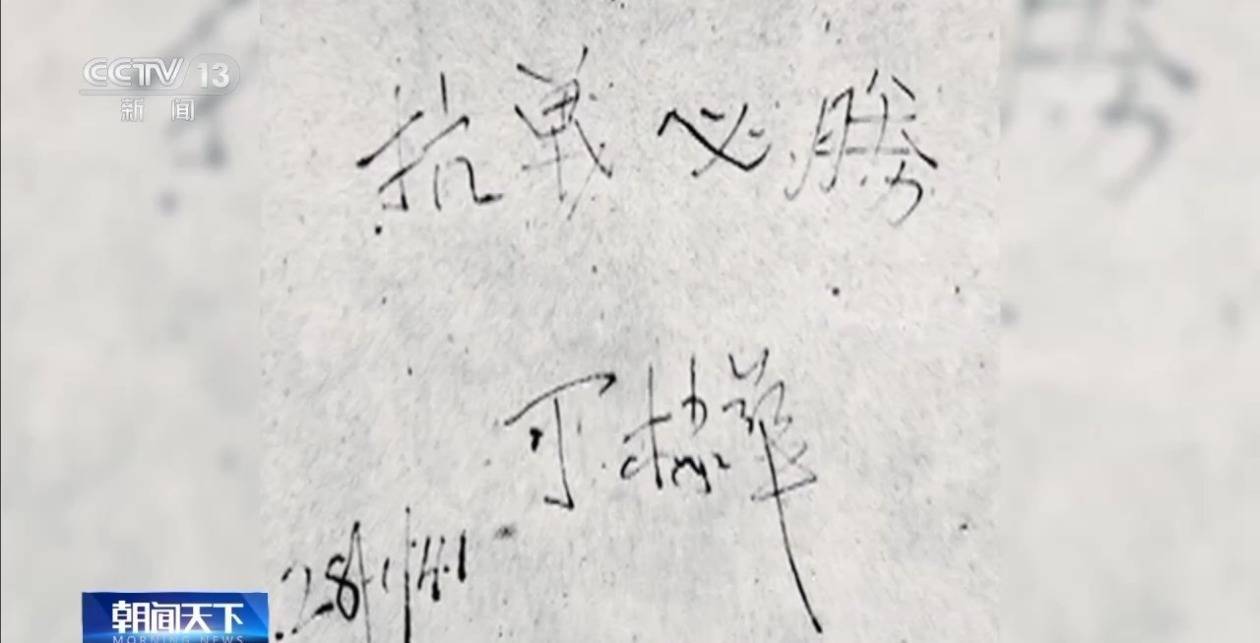 CCTV 13
新闻
抗戦必勝
柯棣華
28/1/41
朝闻天下
MORNING NEWS